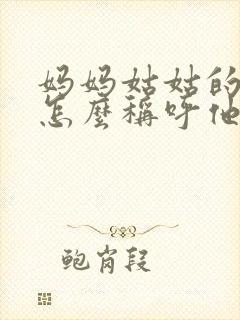 妈妈姑姑的
怎麼稱呼他
鲍岗段